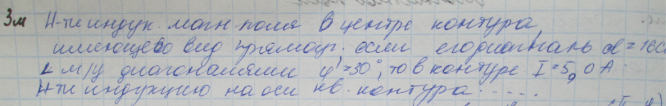 3м Н-ти индук. магн. поля в центре контура
имеющего вид прямоуг. если его диагональ d = 16см
∠ м/у диагоналями φ = 30°, то в контуре I = 5,0 А.
Н-ти индукцию на оси кв. контура.....